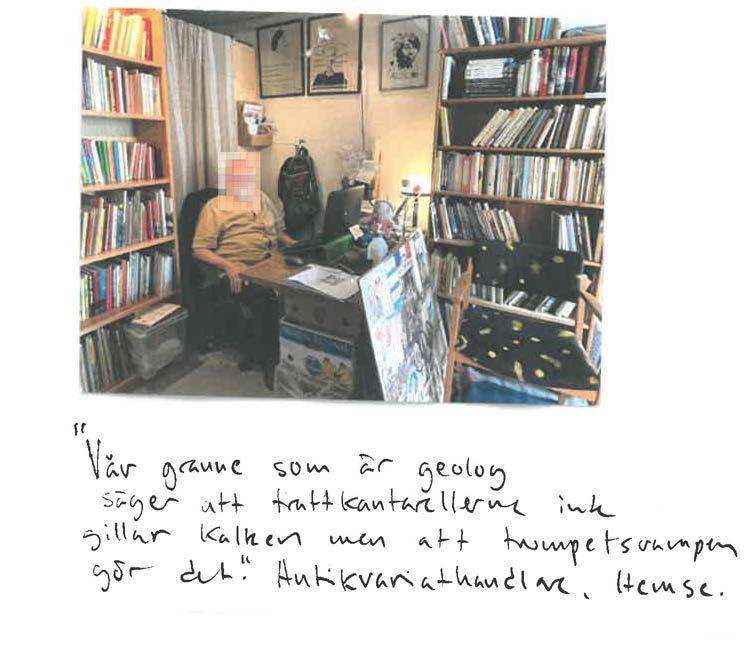 "Vår granne som är geolog
säger att trattkantarellerna ink
gillar kalken men att trumpetsvampen
gör det." Antikvariathandlare, Hemse.